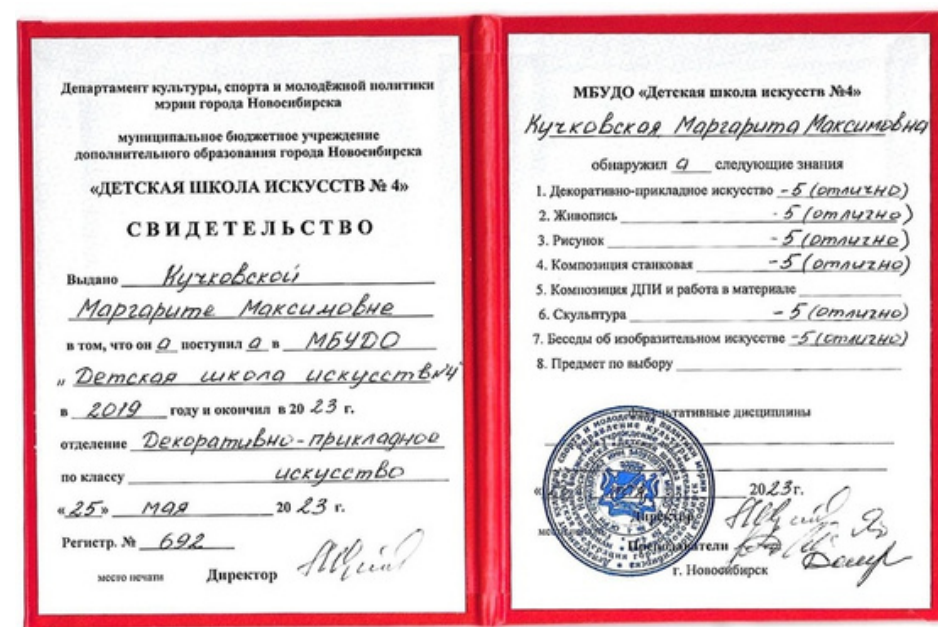 Департамент культуры, спорта и молодёжной политики
мэрии города Новосибирска
муниципальное бюджетное учреждение
дополнительного образования города Новосибирска
«ДЕТСКАЯ ШКОЛА ИСКУССТВ № 4»
СВИДЕТЕЛЬСТВО
Выдано Кучковской
Маргарите Максимовне
в том, что он а поступил а в МБУДО
„Детская школа искусств №4"
в 2019 году и окончил в 20 23 г.
отделение Декоративно-прикладное
по классу искусство
«25» мая 20 23 г.
Регистр. № 692
место печати Директор
МБУДО «Детская школа искусств №4»
Кучковская Маргарита Максимовна
обнаружил а следующие знания
1. Декоративно-прикладное искусство -5 (отлично)
2. Живопись -5 (отлично)
3. Рисунок -5 (отлично)
4. Композиция станковая -5 (отлично)
5. Композиция ДПИ и работа в материале
6. Скульптура -5 (отлично)
7. Беседы об изобразительном искусстве -5 (отлично)
8. Предмет по выбору
Факультативные дисциплины
2023г.
Директор
Преподаватели
г. Новосибирск